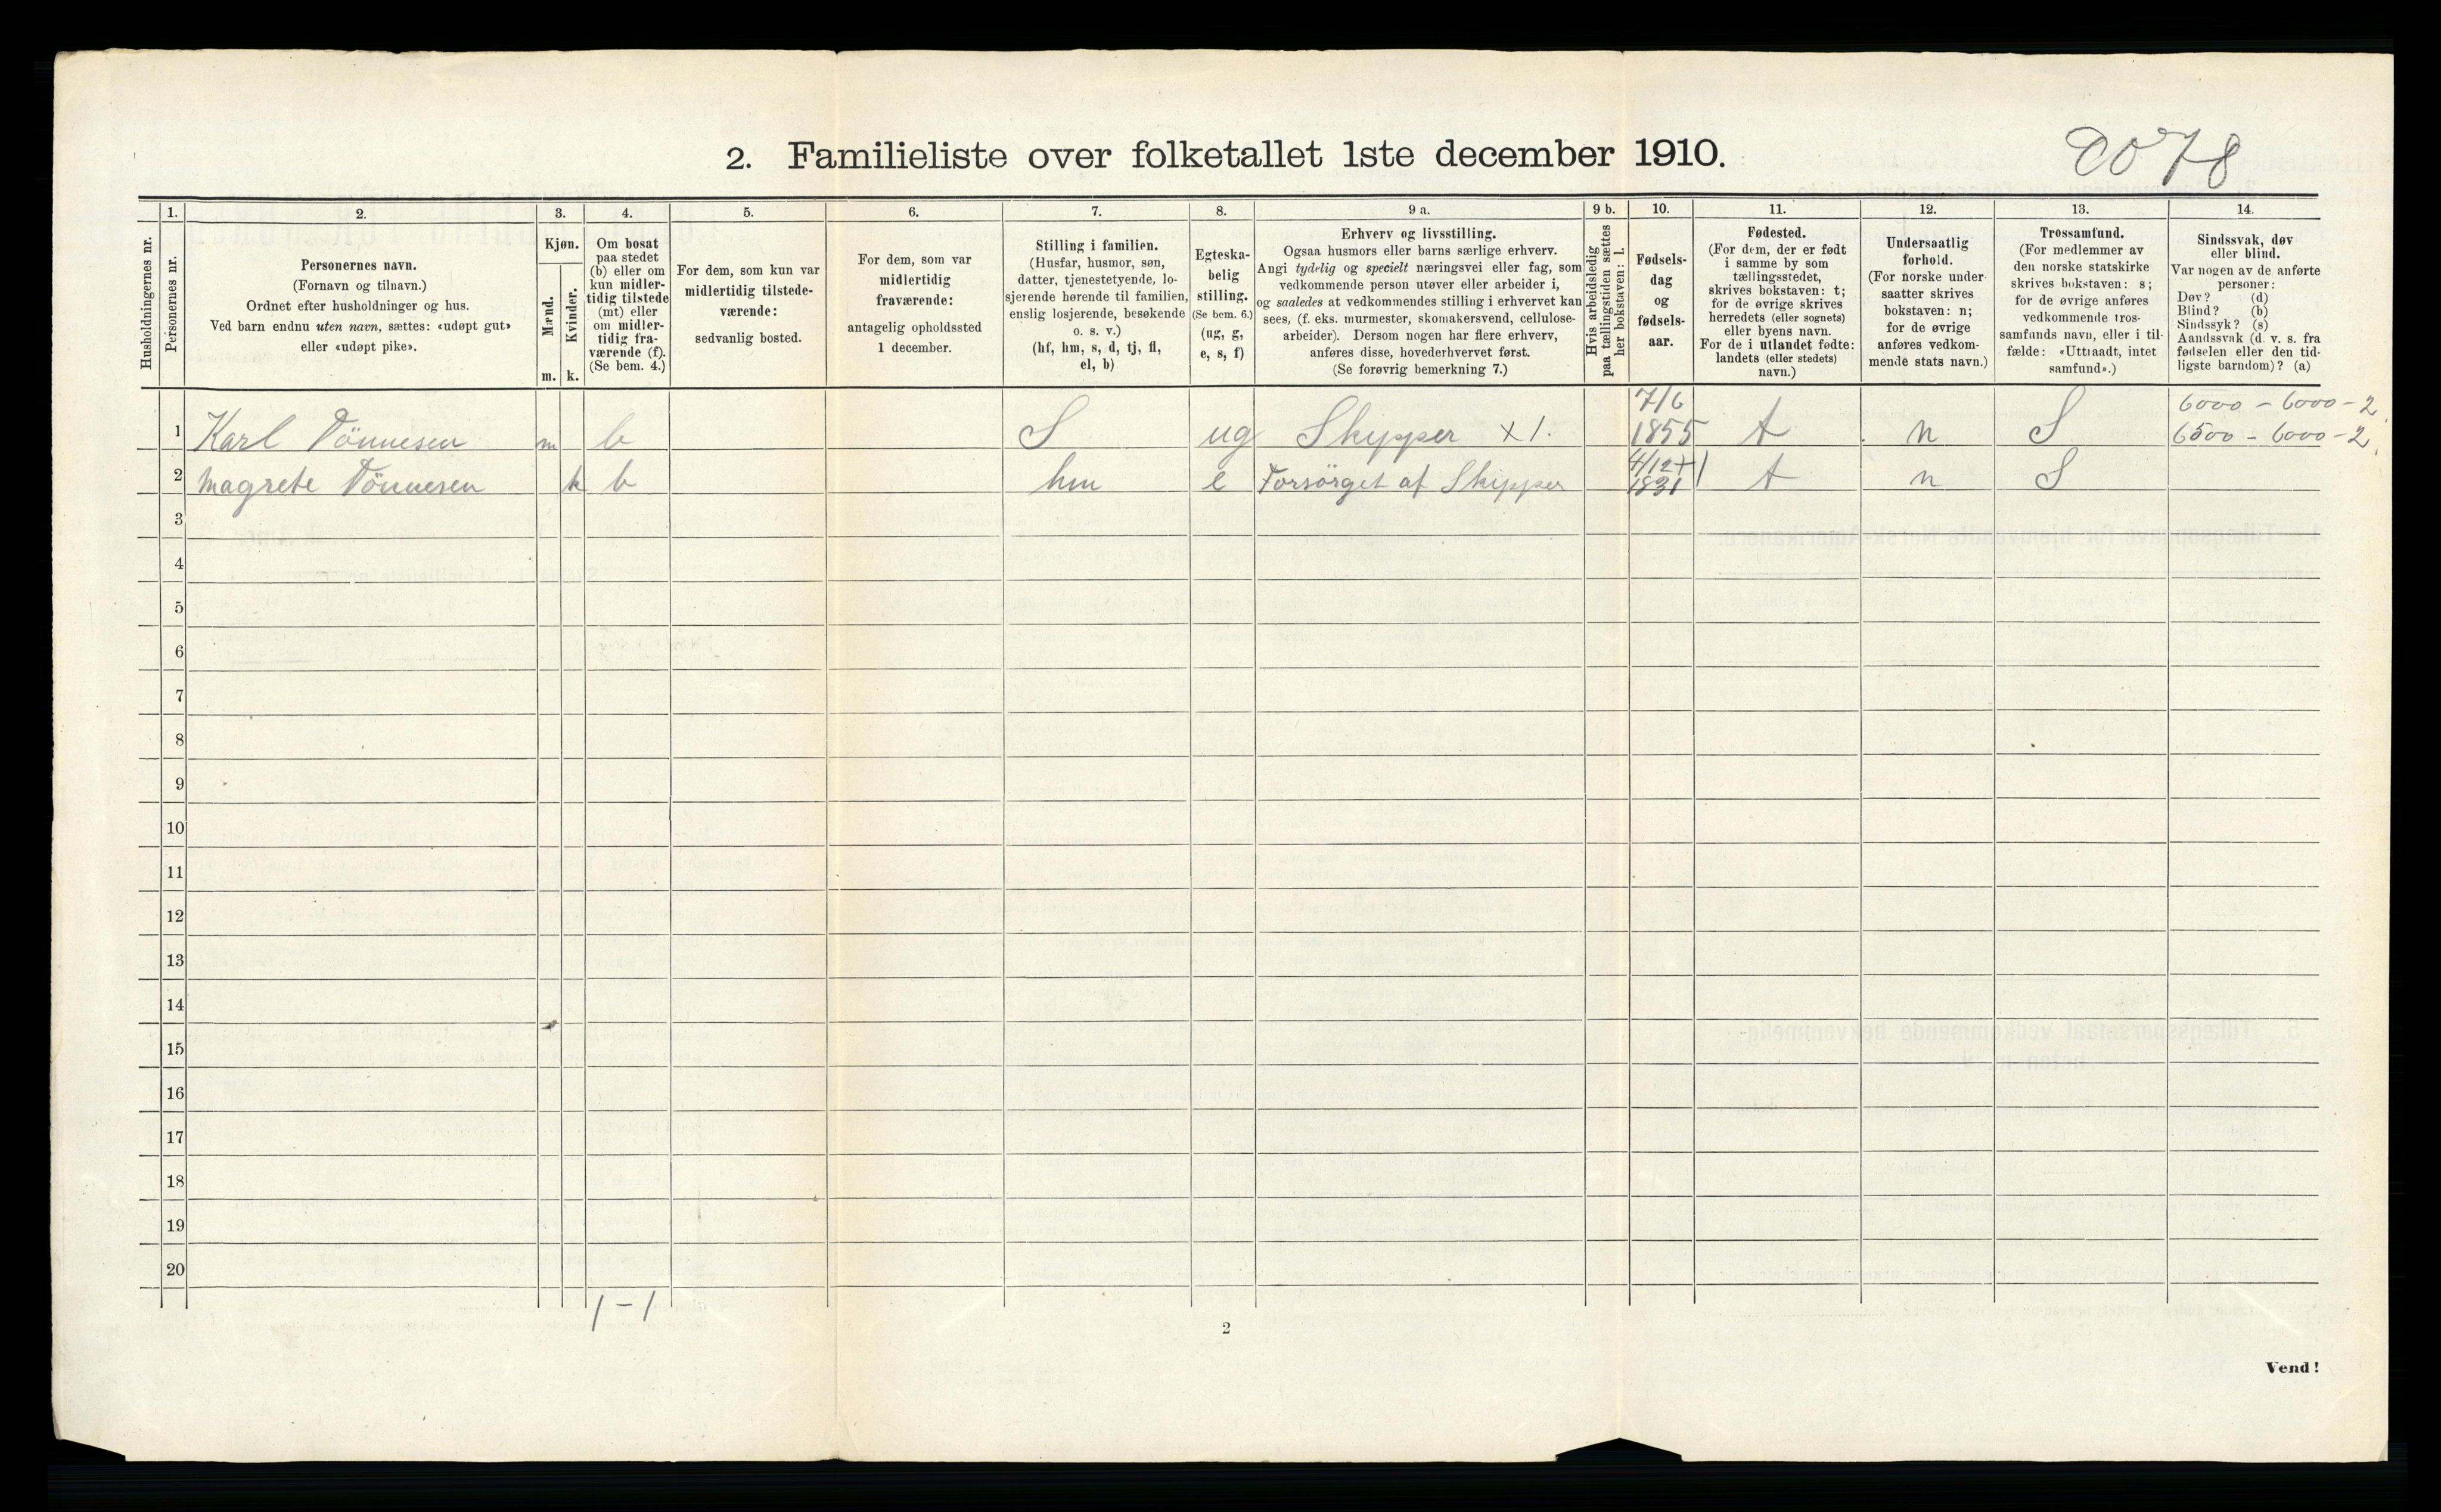 2. Familieliste over folketallet 1ste december 1910.
2078
Husholdningernes nr.
1.
Personernes nr.
2.
Personernes navn.
(Fornavn og tilnavn.)
Ordnet efter husholdninger og hus.
Ved barn endnu uten navn, sættes: «udøpt gut»
eller «udøpt pike».
3.
Kjøn.
Mænd.
Kvinder.
m. k.
4.
Om bosat
paa stedet
(b) eller om
kun midler-
tidig tilstede
(mt) eller
om midler-
tidig fra-
værende (f).
(Se bem. 4.)
5.
For dem, som kun var
midlertidig tilstede-
værende:
sedvanlig bosted.
6.
For dem, som var
midlertidig
fraværende:
antagelig opholdssted
1 december.
7.
Stilling i familien.
(Husfar, husmor, søn,
datter, tjenestetyende, lo-
sjerende hørende til familien,
enslig losjerende, besøkende
o. s. v.)
(hf, hm, s, d, tj, fl,
el, b)
8.
Egteska-
belig
stilling.
(Se bem. 6.)
(ug, g,
e, s, f)
9 a.
Erhverv og livsstilling.
Ogsaa husmors eller barns særlige erhverv.
Angi tydelig og specielt næringsvei eller fag, som
vedkommende person utøver eller arbeider i,
og saaledes at vedkommendes stilling i erhvervet kan
sees, (f. eks. murmester, skomakersvend, cellulose-
arbeider). Dersom nogen har flere erhverv,
anføres disse, hovederhvervet først.
(Se forøvrig bemerkning 7.)
9 b.
Hvis arbeidsledig
paa tællingstiden sættes
her bokstaven: l.
10.
Fødsels-
dag
og
fødsels-
aar.
11.
Fødested.
(For dem, der er født
i samme by som
tællingsstedet,
skrives bokstaven: t;
for de øvrige skrives
herredets (eller sognets)
eller byens navn.
For de i utlandet fødte:
landets (eller stedets)
navn.)
12.
Undersaatlig
forhold.
(For norske under-
saatter skrives
bokstaven: n;
for de øvrige
anføres vedkom-
mende stats navn.)
13.
Trossamfund.
(For medlemmer av
den norske statskirke
skrives bokstaven: s;
for de øvrige anføres
vedkommende tros-
samfunds navn, eller i til-
fælde: «Uttraadt, intet
samfund».)
14.
Sindssvak, døv
eller blind.
Var nogen av de anførte
personer:
Døv? (d)
Blind? (b)
Sindssyk? (s)
Aandssvak (d. v. s. fra
fødselen eller den tid-
ligste barndom)? (a)
1 Karl Tönnesen m b S ug Skipper x 1. 7/6 1855 t n S 6000 - 6000 - 2
6500 - 6000 - 2
2 Magrete Tönnesen k b hm e Forsörget af Skipper 4/12 1831 t n S
3
4
5
6
7
8
9
10
11
12
13
14
15
16
17
18
19
20
1 - 1
2
Vend!